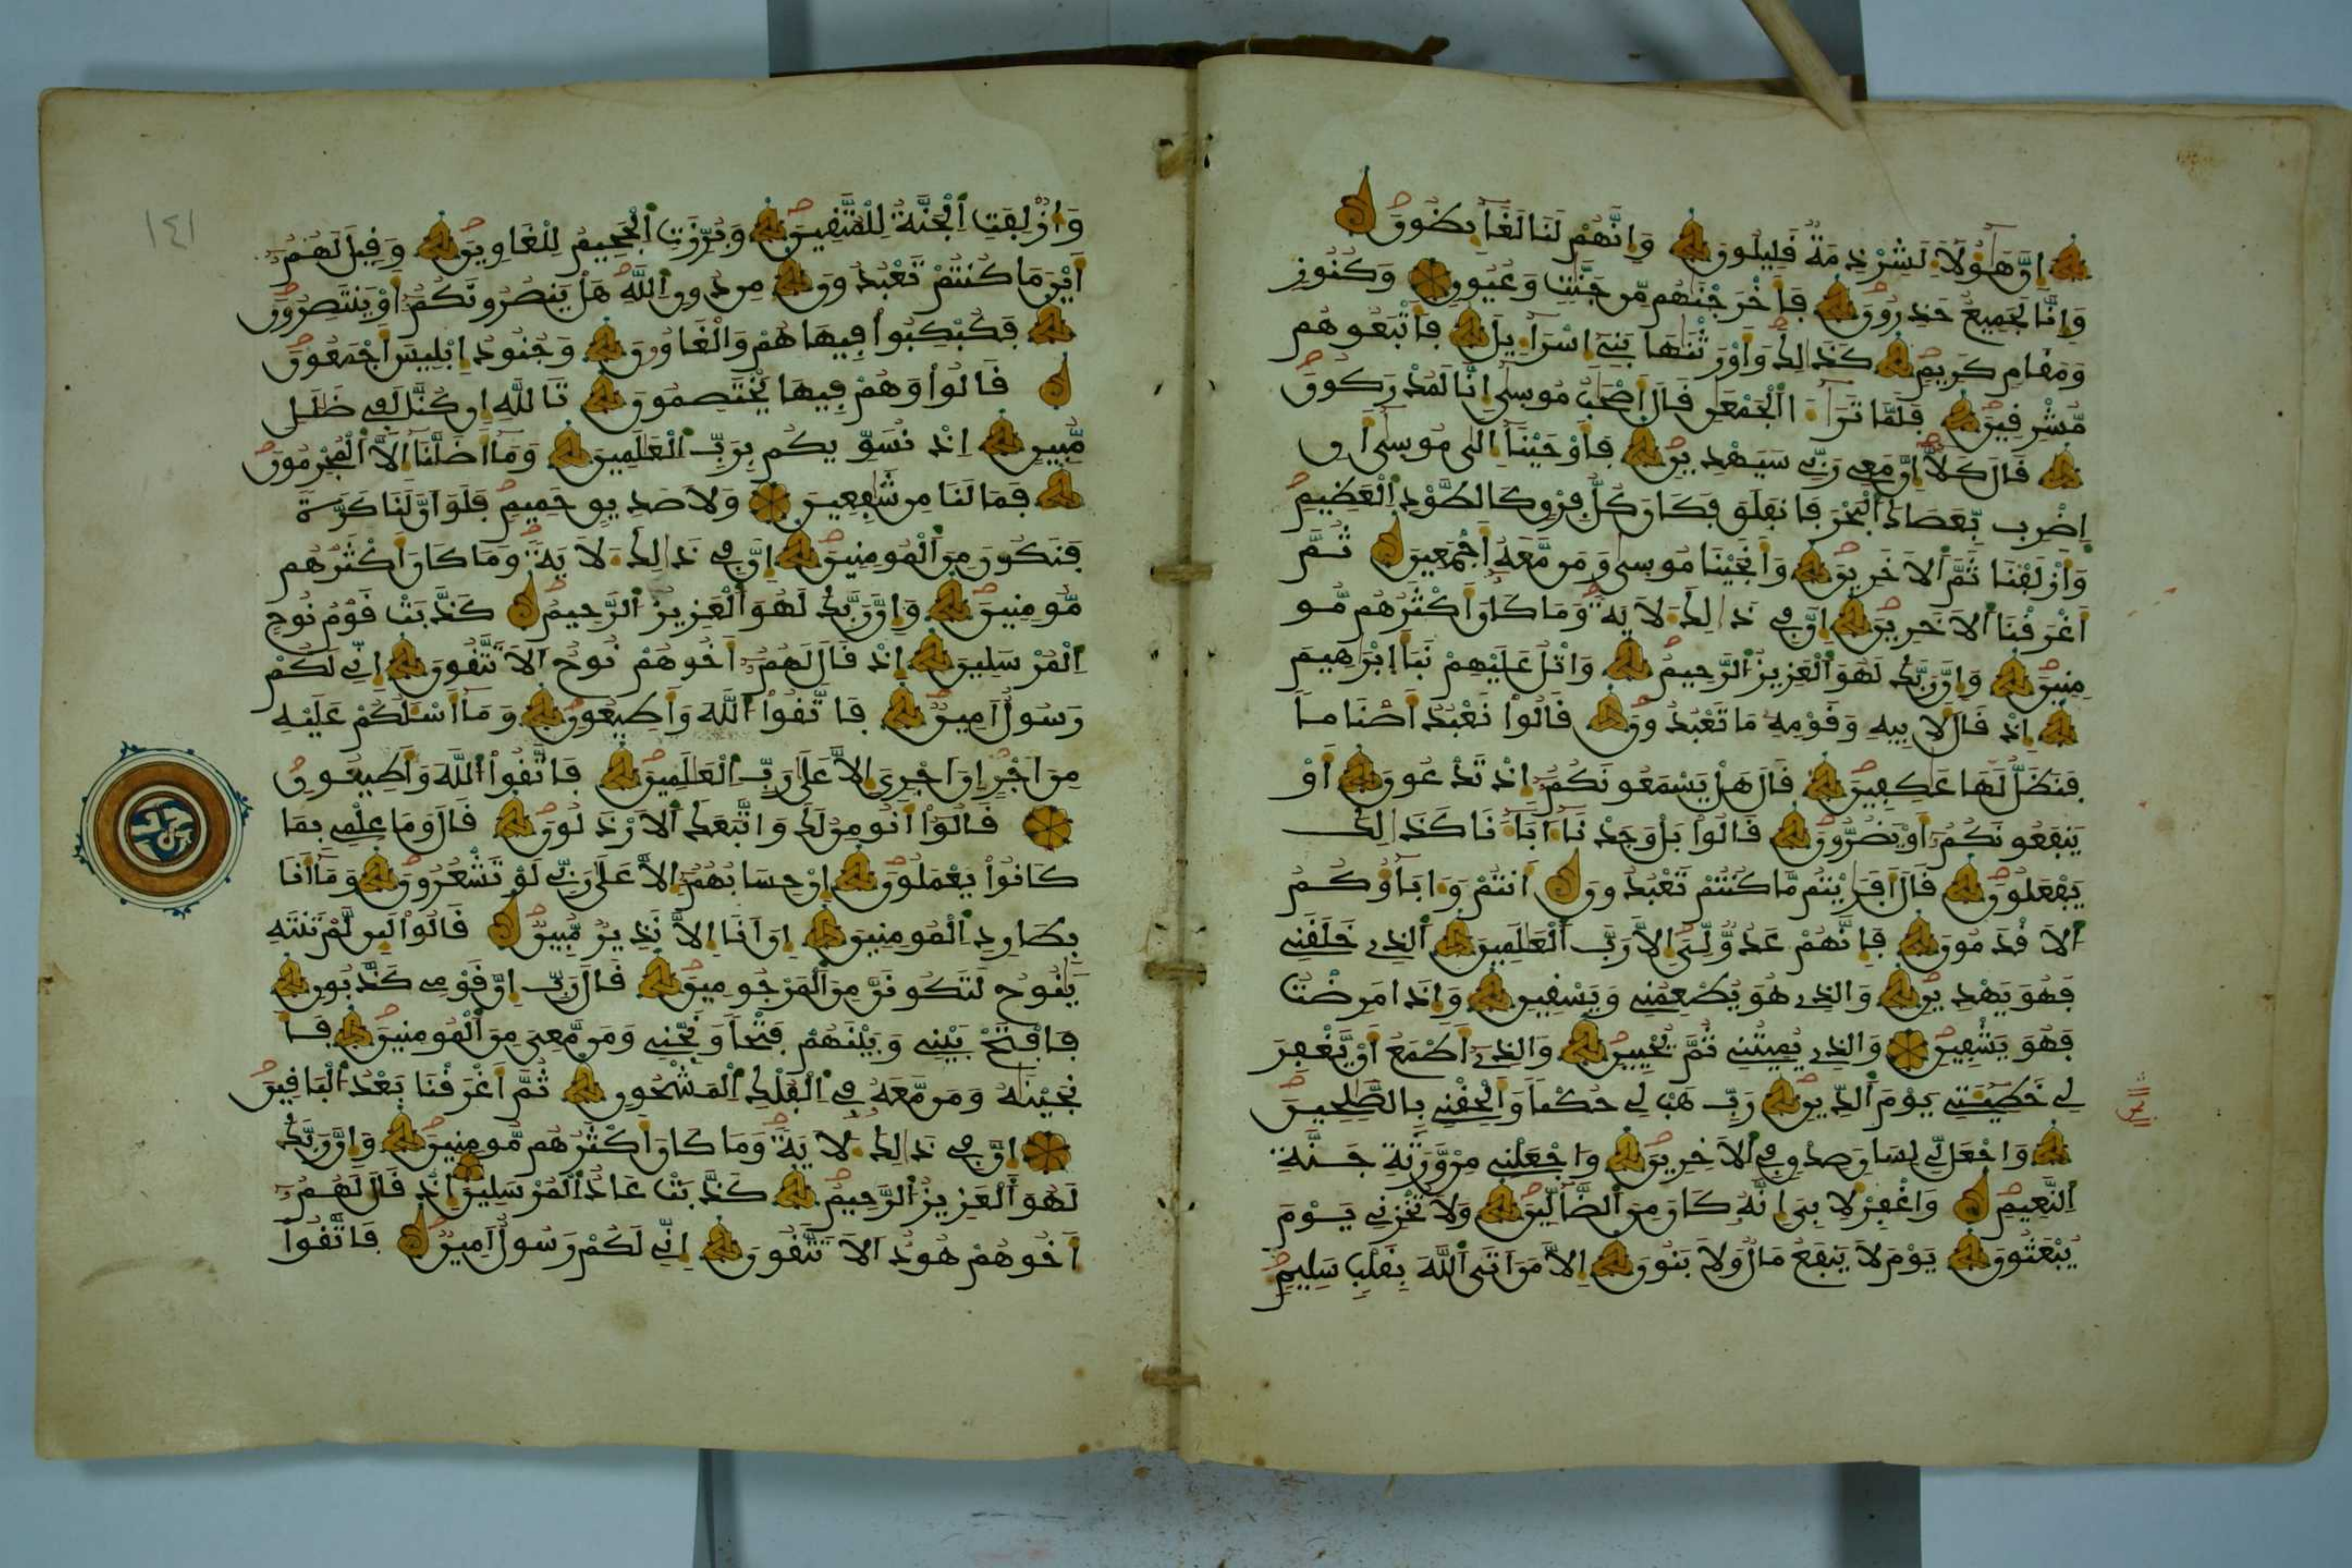 اِنَّ هَٰؤُلَاءِ لَشِرْذِمَةٌ قَلِيلُونَ وَاِنَّهُمْ لَنَا لَغَآئِظُونَ
وَاِنَّا لَجَمِيعٌ حَذِرُونَ فَأَخْرَجْنَٰهُم مِّن جَنَّٰتٍ وَعُيُونٍ وَكُنُوزٍ
وَمَقَامٍ كَرِيمٍ كَذَٰلِكَ وَأَوْرَثْنَٰهَا بَنِىٓ إِسْرَآءِيلَ فَأَتْبَعُوهُم
مُّشْرِقِينَ فَلَمَّا تَرَٰٓءَا اَلْجَمْعَٰنِ قَالَ أَصْحَٰبُ مُوسِىٰٓ إِنَّا لَمُدْرَكُونَ
قَالَ كَلَّآ إِنَّ مَعِى رَبِّى سَيَهْدِينِ فَأَوْحَيْنَآ إِلَىٰ مُوسِىٰٓ أَنِ
اِضْرِب بِّعَصَاكَ اَلْبَحْرَ فَانفَلَقَ فَكَانَ كُلُّ فِرْقٍ كَالطَّوْدِ اِلْعَظِيمِ
وَأَزْلَفْنَا ثَمَّ اَلَاخَرِينَ وَأَنجَيْنَا مُوسِىٰ وَمَن مَّعَهُ أَجْمَعِينَ ثُمَّ
أَغْرَقْنَا اَلَاخَرِينَ إِنَّ فِى ذَٰلِكَ لَأٓيَةً وَمَا كَانَ أَكْثَرُهُم مُّو
مِنِينَ وَإِنَّ رَبَّكَ لَهُوَ اَلْعَزِيزُ اَلرَّحِيمُ وَاتْلُ عَلَيْهِمْ نَبَأَ إِبْرَٰهِيمَ
إِذْ قَالَ لِأَبِيهِ وَقَوْمِهِ مَا تَعْبُدُونَ قَالُواْ نَعْبُدُ أَصْنَاماً
فَنَظَلُّ لَهَا عَٰكِفِينَ قَالَ هَلْ يَسْمَعُونَكُمُۥٓ إِذْ تَدْعُونَ أَوْ
يَنفَعُونَكُمُۥٓ أَوْ يَضُرُّونَ قَالُواْ بَلْ وَجَدْنَآ ءَابَآءَنَا كَذَٰلِكَ
يَفْعَلُونَ قَالَ أَفَرَٰيْتُم مَّا كُنتُمْ تَعْبُدُونَ أَنتُمْ وَءَابَآؤُكُمُ
اَلَاقْدَمُونَ فَإِنَّهُمْ عَدُوٌّ لِّىَ إِلَّا رَبَّ اَلْعَٰلَمِينَ اَلذِى خَلَقَنِى
فَهُوَ يَهْدِينِ وَالذِى هُوَ يُطْعِمُنِى وَيَسْقِينِ وَإِذَا مَرِضْتُ
فَهُوَ يَشْفِينِ وَالذِى يُمِيتُنِى ثُمَّ يُحْيِينِ وَالذِىٓ أَطْمَعُ أَنْ يَّغْفِرَ
لِى خَطِيٓـَٔتِى يَوْمَ اَلدِّينِ رَبِّ هَبْ لِى حُكْماً وَأَلْحِقْنِى بِالصَّٰلِحِينَ
وَاجْعَل لِّى لِسَانَ صِدْقٍ فِى اِلَاخِرِينَ وَاجْعَلْنِى مِنْ وَّرَثَةِ جَنَّةِ
اِلنَّعِيمِ وَاغْفِرْ لِأَبِىَ إِنَّهُ كَانَ مِنَ اَلضَّآلِّينَ وَلَا تُخْزِنِى يَوْمَ
يُبْعَثُونَ يَوْمَ لَا يَنفَعُ مَالٌ وَلَا بَنُونَ إِلَّا مَنَ اَتَى اَللَّهَ بِقَلْبٍ سَلِيمٍ
وَأُزْلِفَتِ اِلْجَنَّةُ لِلْمُتَّقِينَ وَبُرِّزَتِ اِلْجَحِيمُ لِلْغَاوِينَ وَقِيلَ لَهُمُۥٓ
أَيْنَ مَا كُنتُمْ تَعْبُدُونَ مِن دُونِ اِللَّهِ هَلْ يَنصُرُونَكُمُۥٓ أَوْ يَنتَصِرُونَ
فَكُبْكِبُواْ فِيهَا هُمْ وَالْغَاوُونَ وَجُنُودُ إِبْلِيسَ أَجْمَعُونَ
قَالُواْ وَهُمْ فِيهَا يَخْتَصِمُونَ تَاللَّهِ إِن كُنَّا لَفِى ضَلَٰلٍ
مُّبِينٍ إِذْ نُسَوِّيكُم بِرَبِّ اِلْعَٰلَمِينَ وَمَآ أَضَلَّنَآ إِلَّا اَلْمُجْرِمُونَ
فَمَا لَنَا مِن شَٰفِعِينَ وَلَا صَدِيقٍ حَمِيمٍ فَلَوَ أَنَّ لَنَا كَرَّةً
فَنَكُونَ مِنَ اَلْمُومِنِينَ إِنَّ فِى ذَٰلِكَ لَأٓيَةً وَمَا كَانَ أَكْثَرُهُم
مُّومِنِينَ وَإِنَّ رَبَّكَ لَهُوَ اَلْعَزِيزُ اَلرَّحِيمُ كَذَّبَتْ قَوْمُ نُوحٍ
اِلْمُرْسَلِينَ إِذْ قَالَ لَهُمُۥٓ أَخُوهُمْ نُوحٌ اَلَا تَتَّقُونَ إِنِّى لَكُمْ
رَسُولٌ أَمِينٌ فَاتَّقُواْ اُللَّهَ وَأَطِيعُونِ وَمَآ أَسْـَٔلُكُمْ عَلَيْهِ
مِنَ اَجْرٍ إِنَ اَجْرِىَ إِلَّا عَلَىٰ رَبِّ اِلْعَٰلَمِينَ فَاتَّقُواْ اُللَّهَ وَأَطِيعُونِ
قَالُوٓاْ أَنُومِنُ لَكَ وَاتَّبَعَكَ اَلَارْذَلُونَ قَالَ وَمَا عِلْمِى بِمَا
كَانُواْ يَعْمَلُونَ إِنْ حِسَابُهُمُۥٓ إِلَّا عَلَىٰ رَبِّى لَوْ تَشْعُرُونَ وَمَآ أَنَا
بِطَارِدِ اِلْمُومِنِينَ إِنَ اَنَا إِلَّا نَذِيرٌ مُّبِينٌ قَالُواْ لَئِن لَّمْ تَنتَهِ
يَٰنُوحُ لَتَكُونَنَّ مِنَ اَلْمَرْجُومِينَ قَالَ رَبِّ إِنَّ قَوْمِى كَذَّبُونِ
فَافْتَحْ بَيْنِى وَبَيْنَهُمْ فَتْحاً وَنَجِّنِى وَمَن مَّعِىَ مِنَ اَلْمُومِنِينَ فَأَ
نجَيْنَٰهُ وَمَن مَّعَهُ فِى اِلْفُلْكِ اِلْمَشْحُونِ ثُمَّ أَغْرَقْنَا بَعْدُ اُلْبَاقِينَ
إِنَّ فِى ذَٰلِكَ لَأٓيَةً وَمَا كَانَ أَكْثَرُهُم مُّومِنِينَ وَإِنَّ رَبَّكَ
لَهُوَ اَلْعَزِيزُ اُلرَّحِيمُ كَذَّبَتْ عَادٌ اُلْمُرْسَلِينَ إِذْ قَالَ لَهُمُۥٓ
أَخُوهُمْ هُودٌ اَلَا تَتَّقُونَ إِنِّى لَكُمْ رَسُولٌ أَمِينٌ فَاتَّقُواْ
١٤١